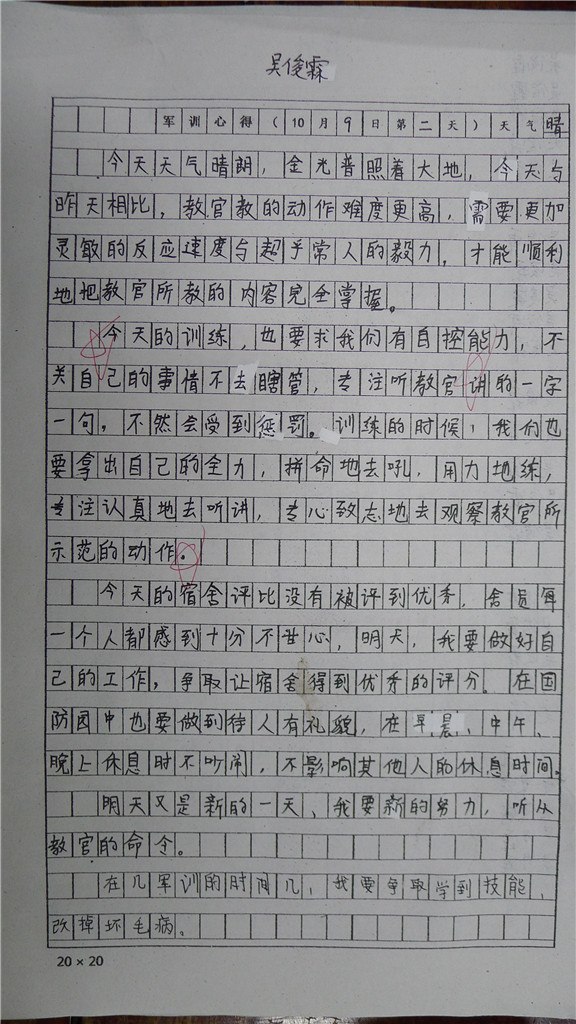 吴俊霖
军训心得(10月9日第二天)天气晴
今天天气晴朗，金光普照着大地，今天与
昨天相比，教官教的动作难度更高，需要更加
灵敏的反应速度与超乎常人的毅力，才能顺利
地把教官所教的内容完全掌握。
今天的训练，也要求我们有自控能力，不
关自己的事情不去瞎管，专注听教官讲的一字
一句，不然会受到惩罚。训练的时候，我们也
要拿出自己的全力，拼命地去吼，用力地练，
专注认真地去听讲，专心致志地去观察教官所
示范的动作。
今天的宿舍评比没有被评到优秀，舍员每
一个人都感到十分不甘心，明天，我要做好自
己的工作，争取让宿舍得到优秀的评分。在国
防园中也要做到待人有礼貌，在早晨、中午、
晚上休息时不吵闹，不影响其他人的休息时间。
明天又是新的一天、我要新的努力，听从
教官的命令。
在几军训的时间几，我要争取学到技能，
改掉坏毛病。
20 × 20